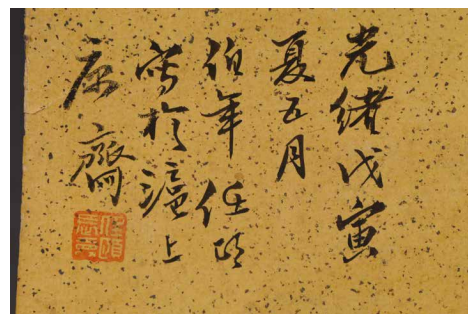 光緒戊寅
夏五月
伯年任頤
寫於滬上
齋
任頤